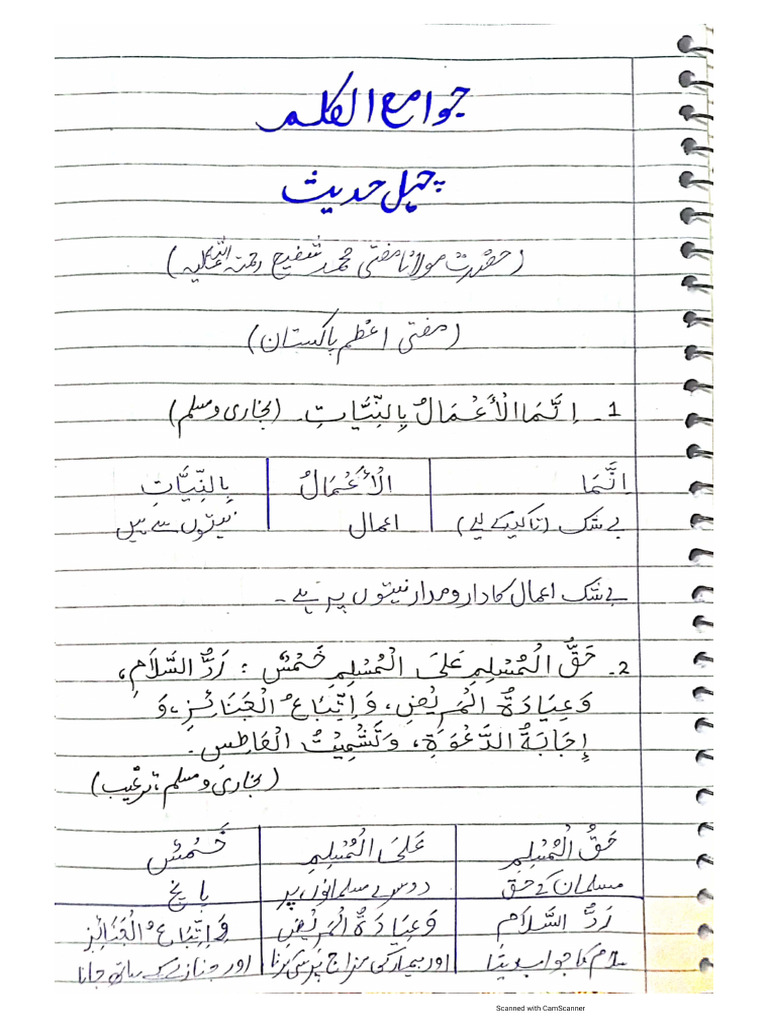 جوامع الکلم
چہل حدیث
(حضرت مولانا مفتی محمد شفیع رحمۃ اللہ علیہ)
(مفتی اعظم پاکستان)
1۔ اِنَّمَا الْأَعْمَالُ بِالنِّيَّاتِ۔ (بخاری ومسلم)
اِنَّمَا الْأَعْمَالُ بِالنِّيَّاتِ
بے شک (تاکید کے لیے) اعمال نیتوں سے ہیں
بے شک اعمال کا دارومدار نیتوں پر ہے۔
2۔ حَقُّ الْمُسْلِمِ عَلَى الْمُسْلِمِ خَمْسٌ : رَدُّ السَّلَامِ،
وَعِيَادَةُ الْمَرِيْضِ، وَاِتِّبَاعُ الْجَنَائِزِ، وَ
إِجَابَةُ الدَّعْوَةِ، وَتَشْمِيْتُ الْعَاطِسِ.
(بخاری ومسلم، ترغیب)
حَقُّ الْمُسْلِمِ عَلَى الْمُسْلِمِ خَمْسٌ
مسلمان کے حق دوسرے مسلمانوں پر پانچ
رَدُّ السَّلَامِ وَعِيَادَةُ الْمَرِيْضِ وَاِتِّبَاعُ الْجَنَائِزِ
سلام کا جواب دینا اور بیمار کی مزاج پرسی کرنا اور جنازے کے ساتھ جانا
Scanned with CamScanner